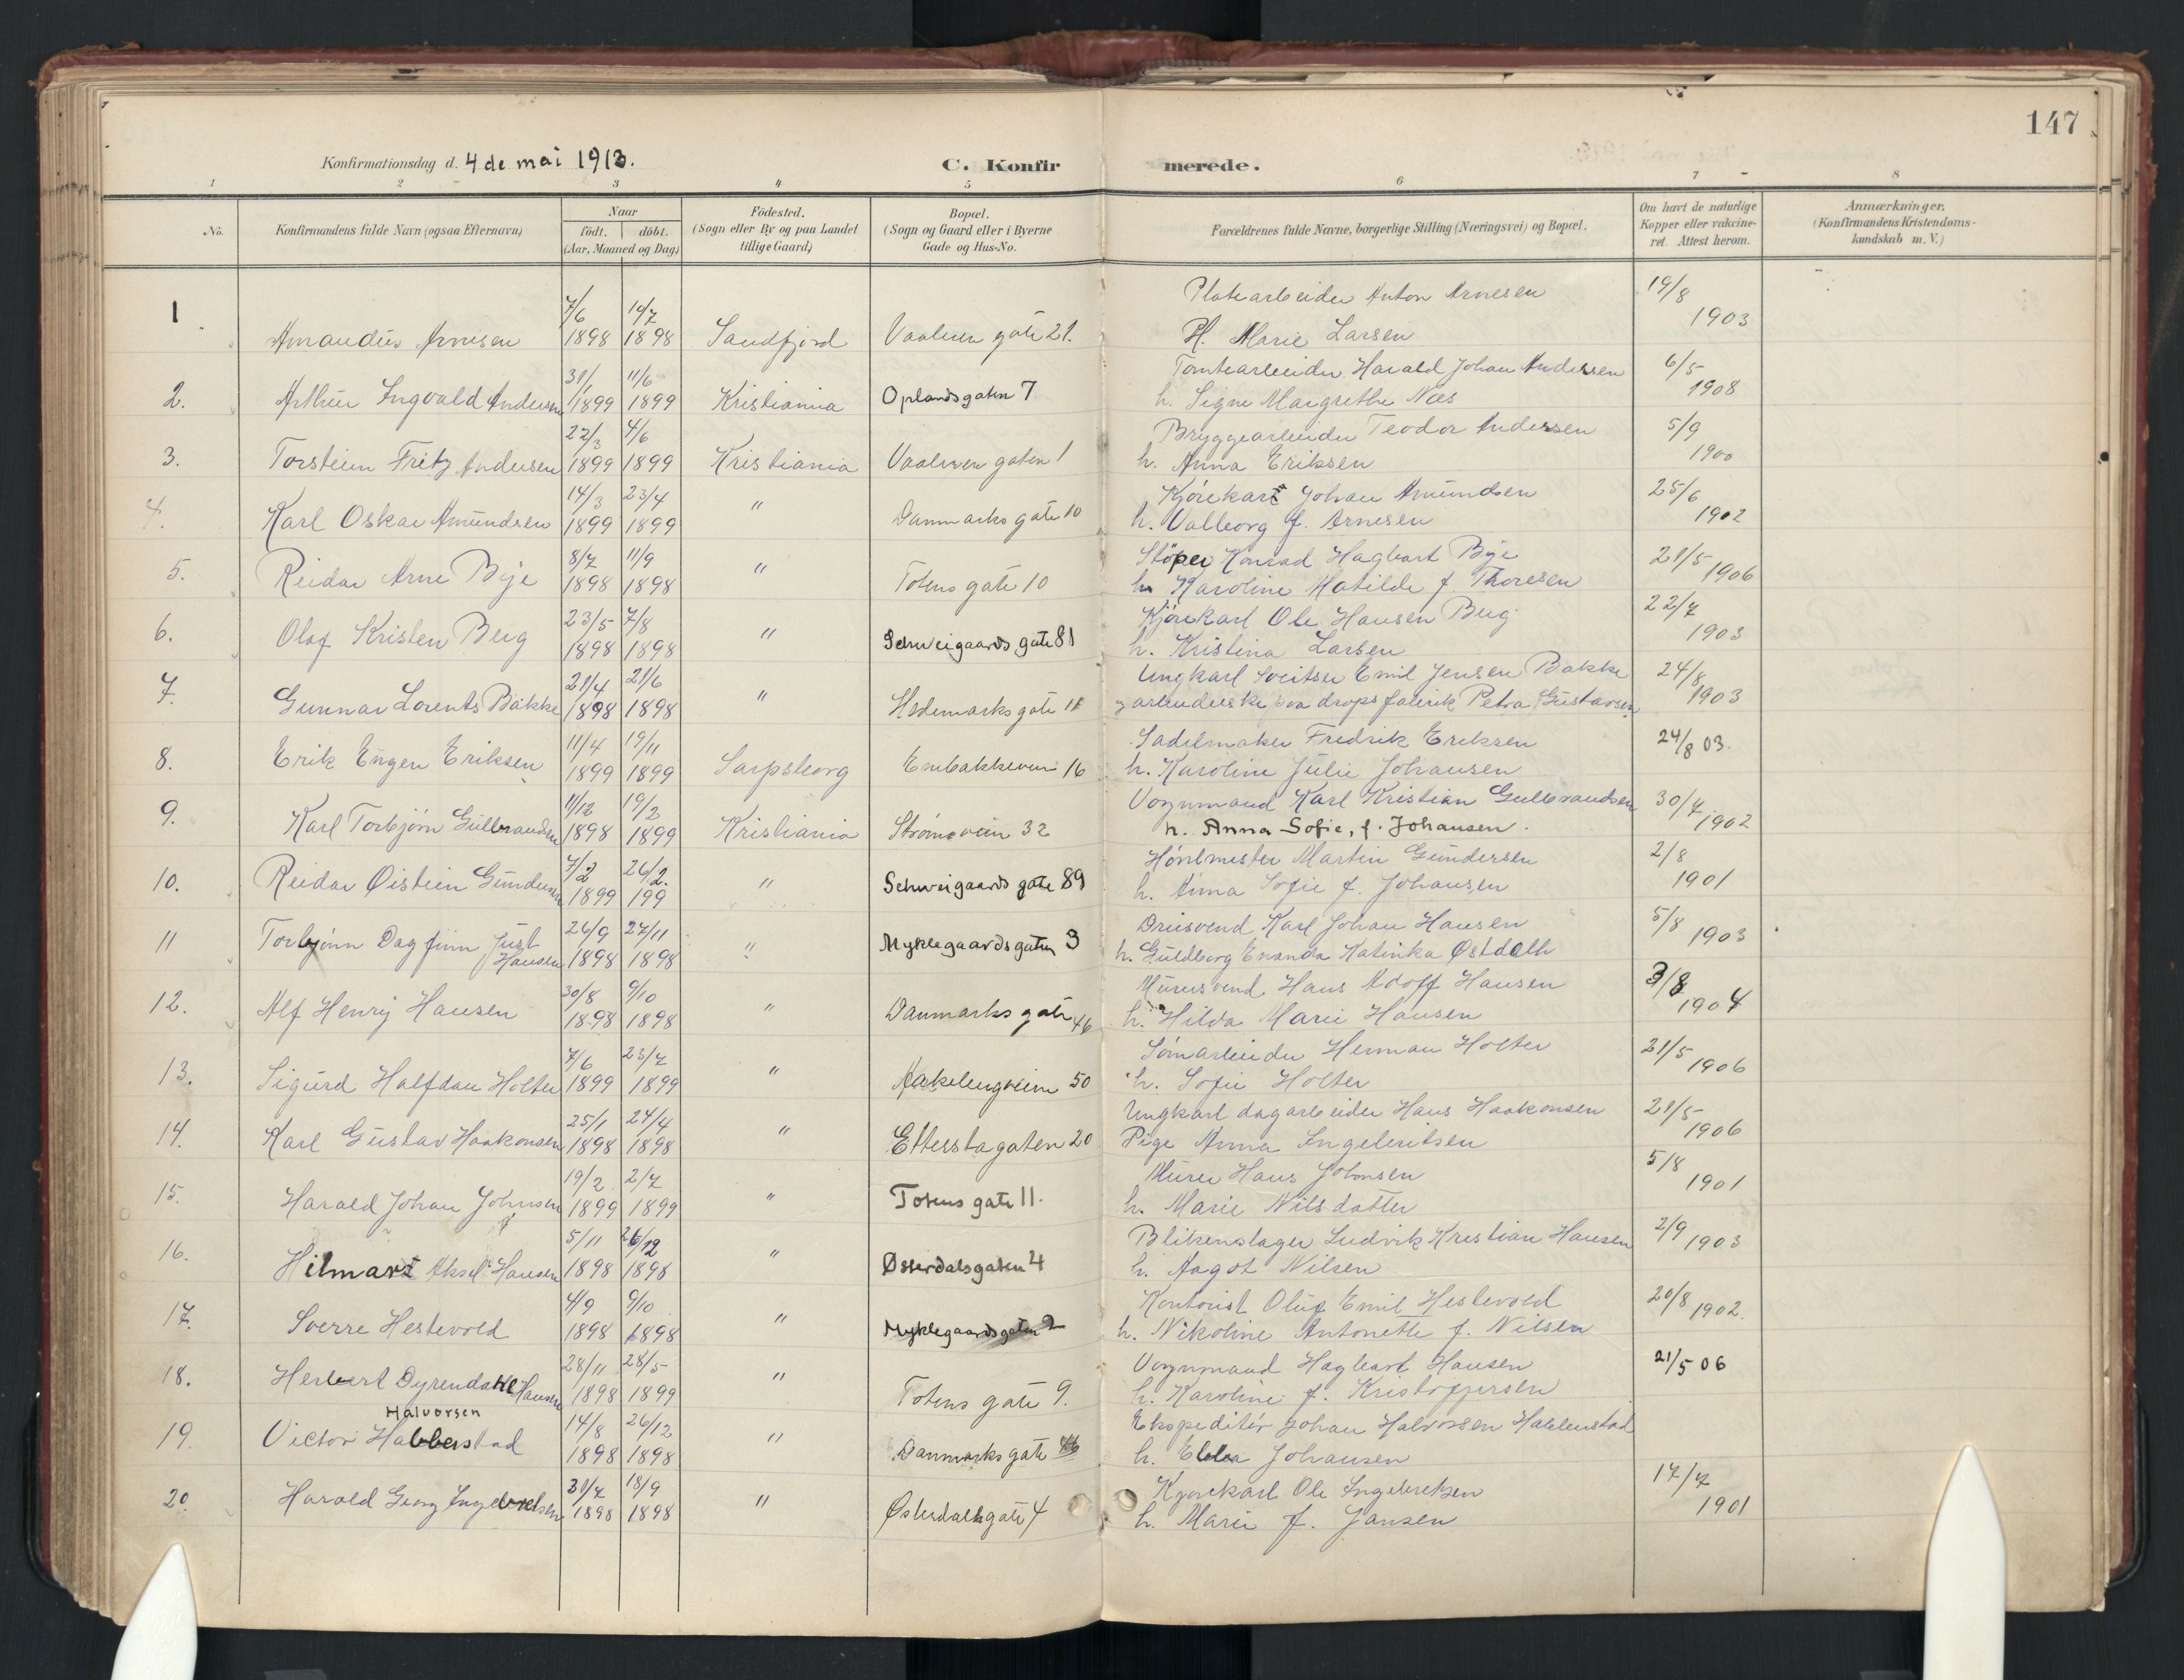 147
Konfirmationsdag d. 4 de mai 1913. C. Konfirmerede.
1 2 3 4 5 6 7 8
No. Konfirmandens fulde Navn (ogsaa Efternavn) Naar födt. döbt. (Aar, Maaned og Dag) Födested. (Sogn eller By og paa Landet tillige Gaard) Bopæl. (Sogn og Gaard eller i Byerne Gade og Hus-No. Forældrenes fulde Navne, borgerlige Stilling (Næringsvei) og Bopæl. Om havt de naturlige Kopper eller vakcineret. Attest herom. Anmærkninger. (Konfirmandens Kristendomskundskab m. V.)
1 7/6 14/7 Platearbeider Anton Arnesen 19/8
Amandus Arnesen 1898 1898 Sandfjord Vaaleren gate 21. Pl. Marie Larsen 1903
31/1 11/6 Tomtearbeider Harald Johan Andersen 6/5
2. Arthur Ingvald Andersen 1899 1899 Kristiania Oplandsgaten 7 h. Signe Margrethe Næs 1908
22/3 4/6 Bryggearbeider Teodor Andersen 5/9
3. Torstein Fritz Andersen 1899 1899 Kristiania Vaaleren gaten 1 h. Anna Eriksen 1900
14/3 23/4 Kjörekarl Johan Amundsen 25/6
4. Karl Oskar Amundsen 1899 1899 " Danmarks gate 10 h. Valborg f. Arnesen 1902
8/7 11/9 Stöper Konrad Hagbart Bye 21/5
5. Reidar Arne Bye 1898 1898 " Totens gate 10 h. Karoline Matilde f. Thoresen 1906
23/5 7/8 Kjörekarl Ole Hansen Berg 22/7
6. Olaf Kristen Berg 1898 1898 " Schweigaards gate 81 h. Kristina Larsen 1903
21/4 21/6 Ungkarl Emil Jensen Bakke 24/8
7. Gunnar Lorents Bakke 1898 1898 " Hedemarks gate 18 arbeiderske paa dropsfabrik Petra Gustavsen 1903
11/4 19/11 Sadelmaker Fredrik Ereksen 24/8 03.
8. Erik Engen Eriksen 1899 1899 Sarpsborg Enebakkeveien 16 h. Karoline Julie Johansen
11/12 19/2 Vognmand Karl Kristian Gulbrandsen 30/7
9. Karl Torbjörn Gulbrandsen 1898 1899 Kristiania Strömsveien 32 h. Anna Sofie, f. Johansen. 1902
7/2 26/2. Martin Gundersen 2/8
10. Reidar Öistein Gundersen 1899 199 " Schweigaards gate 89 h. Anna Sofie f. Johansen 1901
26/9 27/11 Karl Johan Hansen 5/8
11 Torbjörn Dagfinn Just Hansen 1898 1898 " Myklegaardsgaten 3 h. Guldborg Katinka Østdalh 1903
30/8 9/10 Murersvend Hans Adolf Hansen 3/8
12. Alf Henry Hansen 1898 1898 " Danmarks gate 46 h. Hilda Marie Hansen 1904
7/6 23/7 Sömarbeider Herman Holter 21/5
13. Sigurd Halfdan Holter 1899 1899 " Aakebergveien 50 h. Sofie Holter 1906
25/1 24/4 Ungkarl dagarbeider Hans Haakonsen 21/5
14. Karl Gustav Haakonsen 1898 1898 " Etterstagaten 20 Pige Anna Ingebritsen 1906
19/2 2/7 Murer Hans Johnsen 5/8
15. Harald Johan Johnsen 1899 1899 " Totens gate 11. h. Marie Nilsdatter 1901
5/11 26/12 Blikenslager Ludvik Kristian Hansen 2/9 1903
16. Hilmar Aksel Hansen 1898 1898 " Østerdalsgaten 4 h. Aagot Nilsen
4/9 9/10 Kontorist Oluf Emil Hestevold 20/8 1902
17. Sverre Hestevold 1898 1898 " Myklegaardsgaten 2 h. Nikoline Antonette f. Nilsen
28/11 28/5 Vognmand Hagbart Hansen 21/5 06
18. Herbert Dyrendahl Hansen 1898 1899 " Totens gate 9. h. Karoline f. Kristoffersen
Halvorsen 14/8 26/12 Ekspeditör Johan Halvorsen Habberstad
19. Victor Habberstad 1898 1898 " Danmarks gate 46 h. Ebba Johansen
31/7 18/9 Kjörekarl Ole Ingebretsen 17/7
20. Harald Georg Ingebretsen 1898 1898 " Østerdalsgate 4 h. Marie f. Jansen 1901